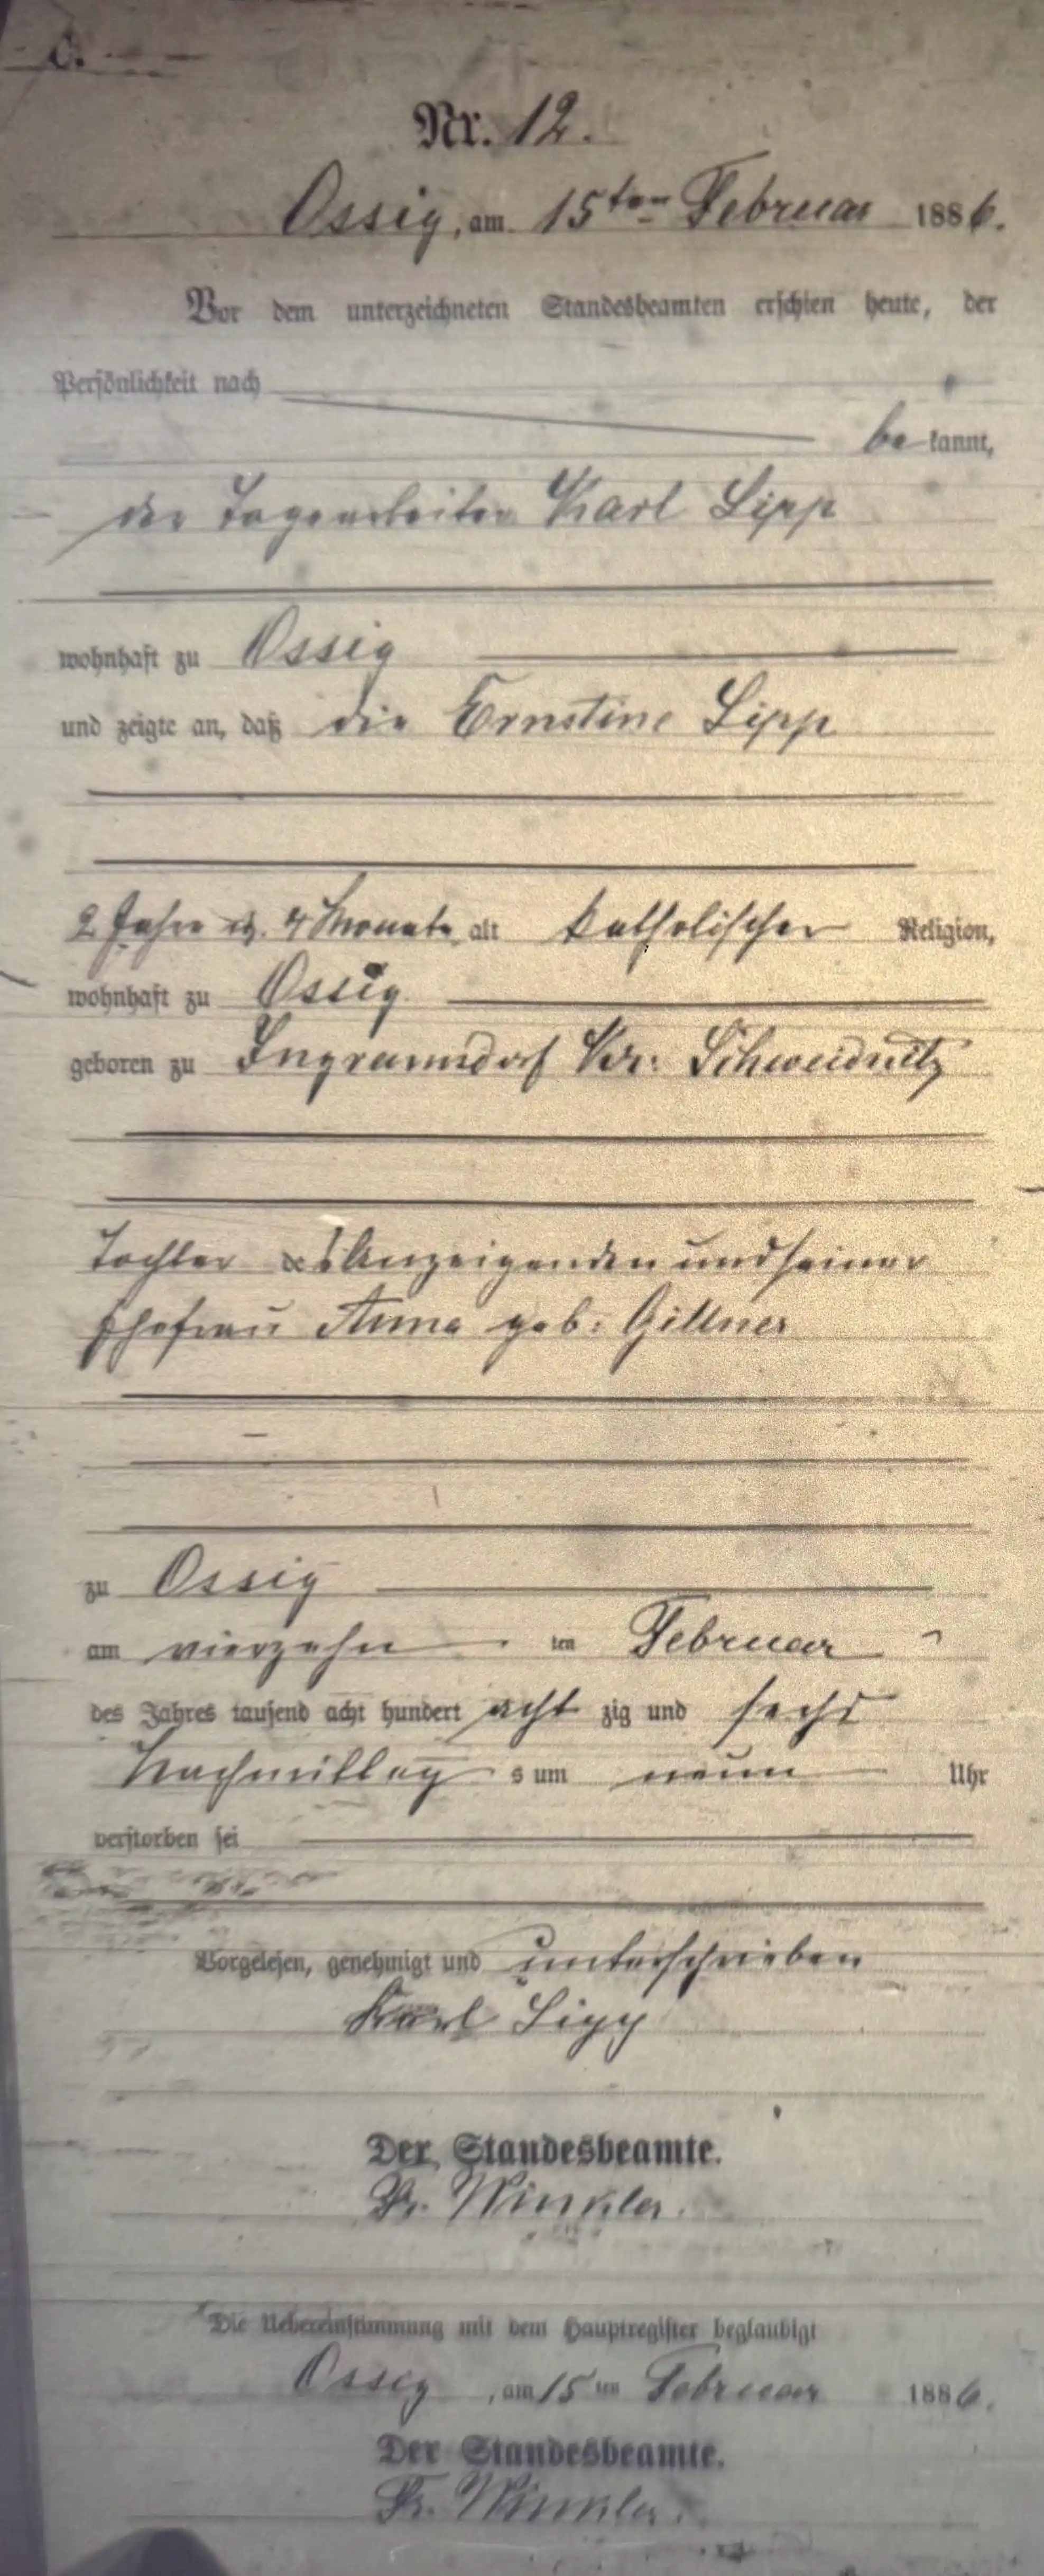 C.
Nr. 12.
Ossig, am 15ten Februar 1886.
Vor dem unterzeichneten Standesbeamten erschien heute, der
Persönlichkeit nach
bekannt,
der Tagearbeiter Karl Lipp
wohnhaft zu Ossig
und zeigte an, daß die Ernstine Lipp
2 Jahre u. 4 Monate alt katholischer Religion,
wohnhaft zu Ossig
geboren zu Ingramsdorf Kr: Schweidnitz
Tochter des Anzeigenden und seiner
Ehefrau Anna geb: Gillner
zu Ossig
am vierzehn ten Februar
des Jahres tausend acht hundert achtzig und sechs
Nachmittags um neun Uhr
verstorben sei
Vorgelesen, genehmigt und unterschrieben
Karl Lipp
Der Standesbeamte.
Fr. Winkler.
Die Uebereinstimmung mit dem Hauptregister beglaubigt
Ossig, am 15ten Februar 1886.
Der Standesbeamte.
Fr. Winkler.